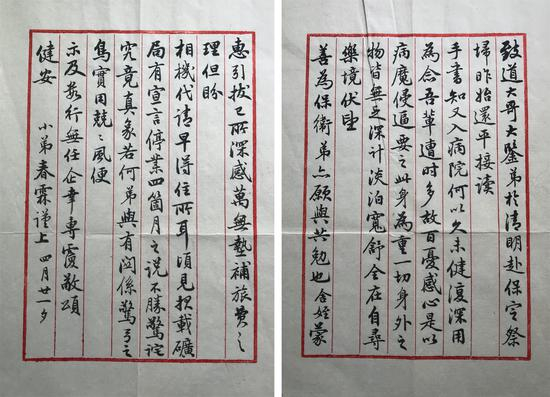 致道大哥大鉴弟於清明赴保定祭
埽昨始還平接讀
手書知又入病院何以久未健復深用
為念吾輩遭时多故百憂感心是以
病魔侵逼要之此身為重一切身外之
物皆無足深計淡泊寬舒全在自尋
樂境伏望
善為保衛弟亦願與共勉也舍姪蒙
惠引拔已所深感萬無墊補旅費之
理但盼
相機代请早得住所耳頃見报載礦
局有宣言停業四箇月之说不勝驚詫
究竟真象若何弟與有関係驚弓之
鳥實用兢〻風便
示及數行無任企幸專覆敬頌
健安
小弟春霖谨上 四月廿一夕